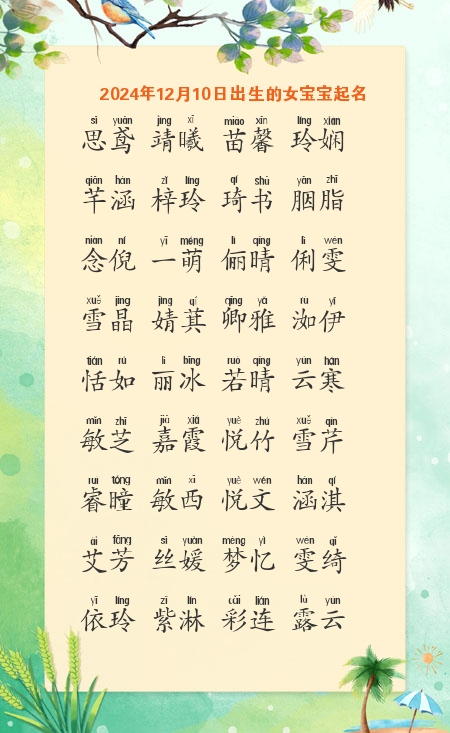 2024年12月10日出生的女宝宝起名
sī yuān jìng xī miáo xīn líng xián
思鸢 靖曦 苗馨 玲娴
qiān hán zǐ líng qí shū yān zhī
芊涵 梓玲 琦书 胭脂
niàn ní yī méng lì qíng lì wén
念倪 一萌 俪晴 俐雯
xuě jīng jìng qí qīng yǎ rù yī
雪晶 婧萁 卿雅 洳伊
tián rú lì bīng ruò qíng yún hán
恬如 丽冰 若晴 云寒
mǐn zhī jiā xiá yuè zhú xuě qín
敏芝 嘉霞 悦竹 雪芹
ruì tóng mǐn xī yuè wén hán qí
睿曈 敏西 悦文 涵淇
ài fāng sī yuàn mèng yì wén qǐ
艾芳 丝媛 梦忆 雯绮
yī líng zǐ lín cǎi lián lù yún
依玲 紫淋 彩连 露云